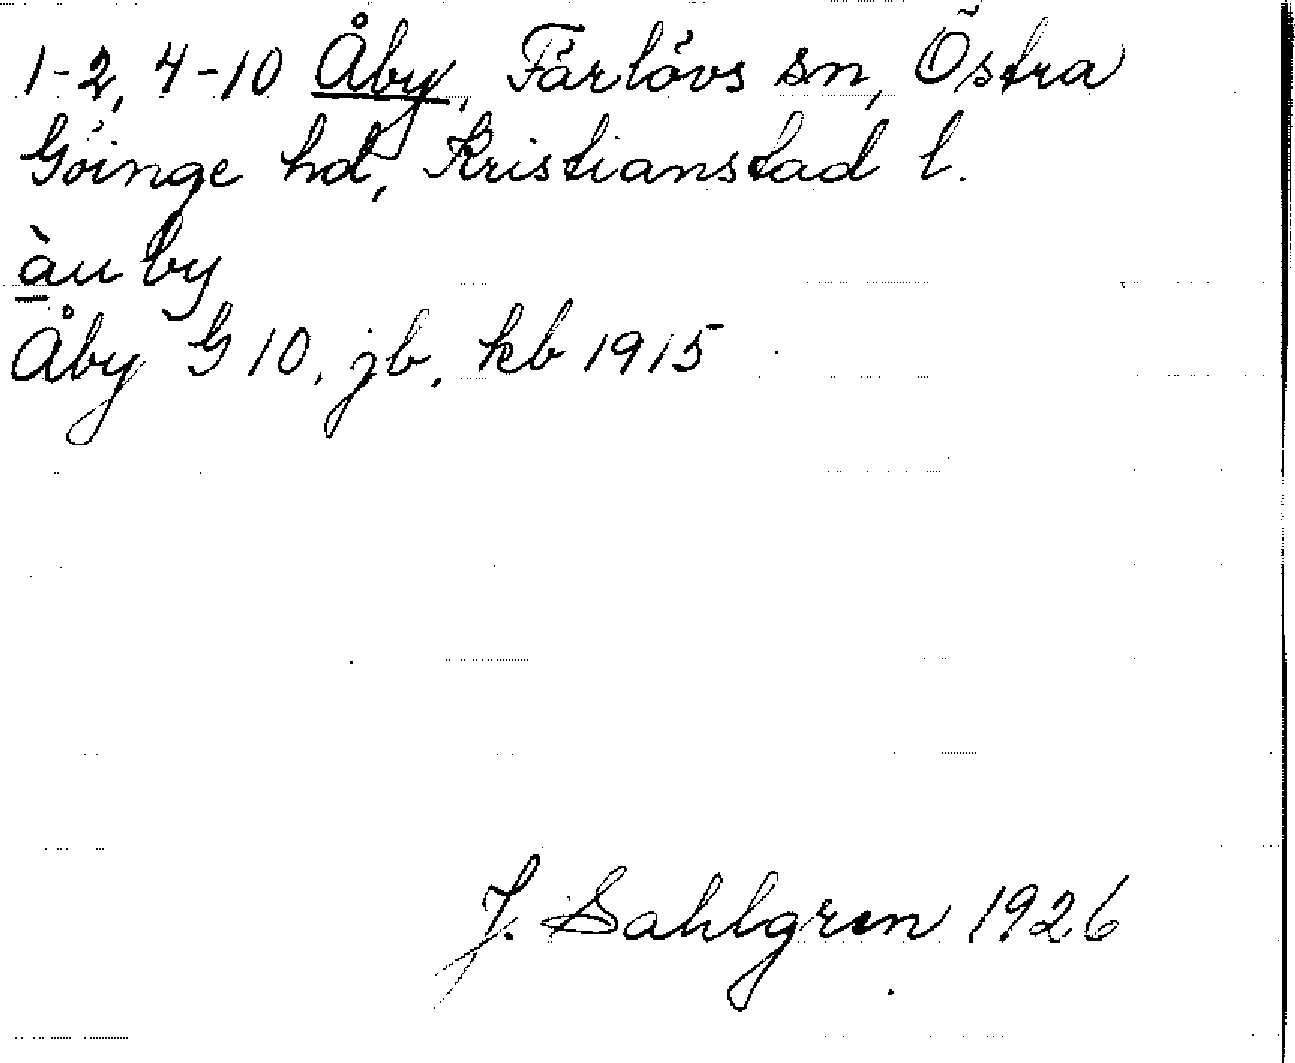 1-2, 4-10 Åby, Färlövs sn, Östra
Göinge hd, Kristianstad l.
àu by
Åby G 10, jb, kb 1915
J. Sahlgren 1926